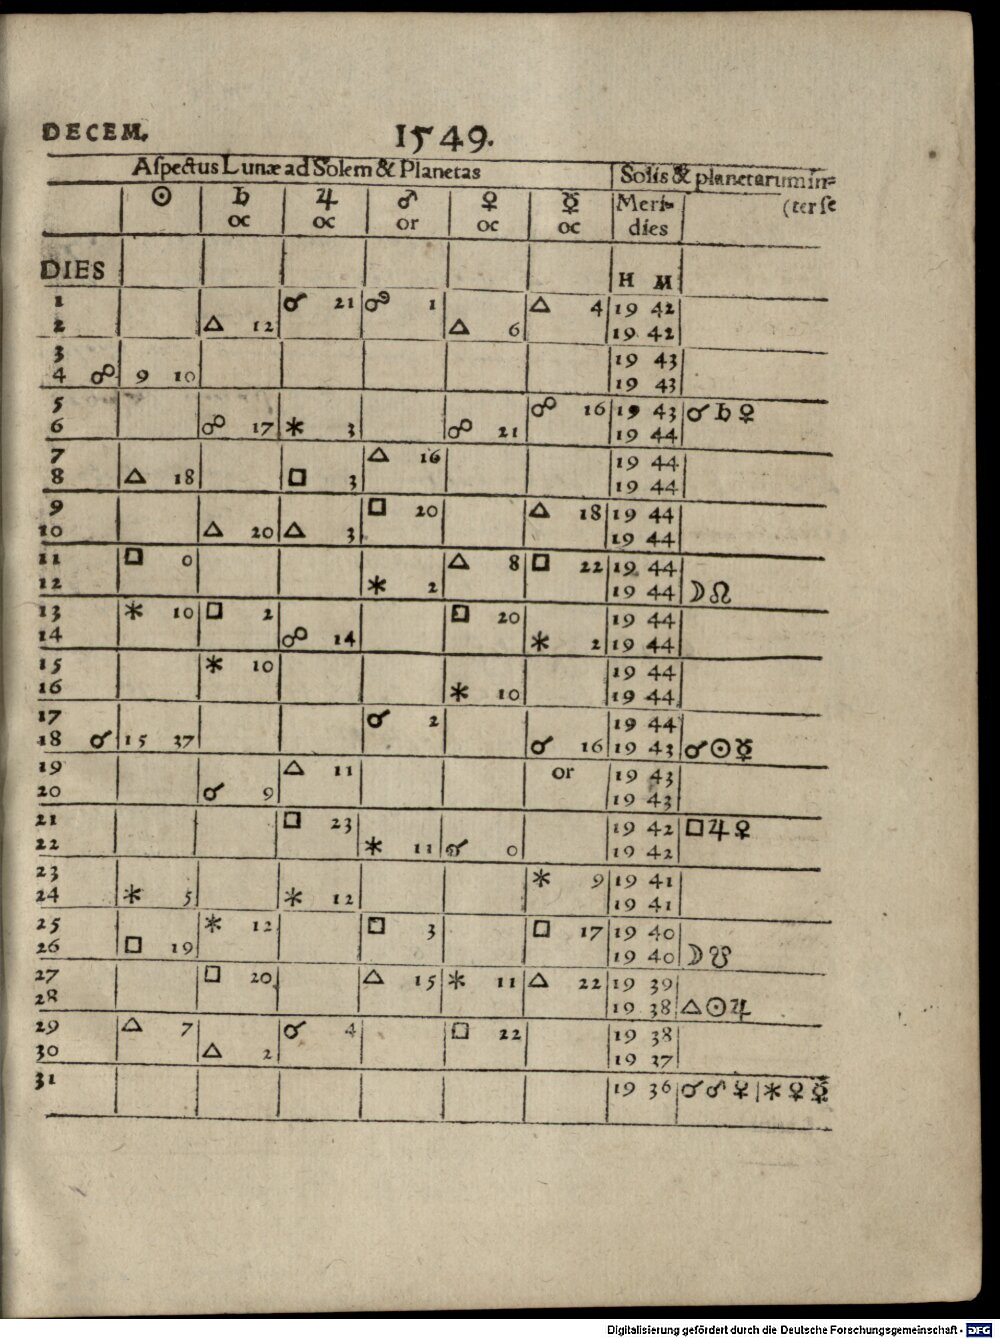 DECEM. 1549.
Aspectus Lunæ ad Solem & Planetas | Solis & planetarum in=
☉ ♄ ♃ ♂ ♀ ☿ Meri- (ter se
oc oc or oc oc dies
DIES H M
1 ☌ 21 ☍ 1 △ 4 19 42
2 △ 12 △ 6 19 42
3 19 43
4 ☍ 9 10 19 43
5 ☍ 16 19 43 ☌ ♄ ♀
6 ☍ 17 ⚹ 3 ☍ 21 19 44
7 △ 16 19 44
8 △ 18 □ 3 19 44
9 □ 20 △ 18 19 44
10 △ 20 △ 3 19 44
11 □ 0 △ 8 □ 22 19 44
12 ⚹ 2 19 44 ☽ ☊
13 ⚹ 10 □ 2 □ 20 19 44
14 ☍ 14 ⚹ 2 19 44
15 ⚹ 10 19 44
16 ⚹ 10 19 44
17 ☌ 2 19 44
18 ☌ 15 37 ☌ 16 19 43 ☌ ☉ ☿
19 △ 11 or 19 43
20 ☌ 9 19 43
21 □ 23 19 42 □ ♃ ♀
22 ⚹ 11 ☌ 0 19 42
23 ⚹ 9 19 41
24 ⚹ 5 ⚹ 12 19 41
25 ⚹ 12 □ 3 □ 17 19 40
26 □ 19 19 40 ☽ ☋
27 □ 20 △ 15 ⚹ 11 △ 22 19 39
28 19 38 △ ☉ ♃
29 △ 7 ☌ 4 □ 22 19 38
30 △ 2 19 37
31 19 36 ☌ ♂ ☿ | ⚹ ♀ ☿
Digitalisierung gefördert durch die Deutsche Forschungsgemeinschaft - DFG